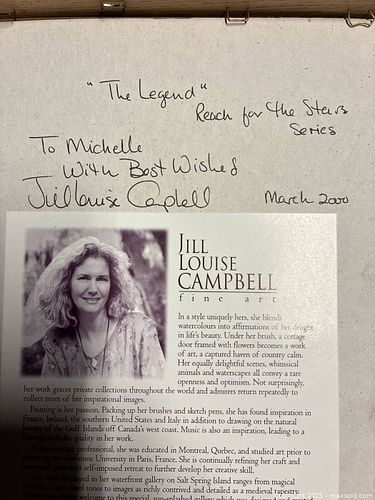 "The Legend"
Reach for the Stars
Series
To Michelle
With Best Wishes
Jill Louise Campbell
March 2000
JILL
LOUISE
CAMPBELL
fine art
In a style uniquely hers, she blends
watercolours into affirmations of her delight
in life's beauty. Under her brush, a cottage
door framed with flowers becomes a work
of art, a captured haven of country calm.
Her equally delightful scenes, whimsical
animals and waterscapes all convey a rare
openness and optimism. Not surprisingly,
her work graces private collections throughout the world and admirers return repeatedly to
collect more of her inspirational images.
Painting is her passion. Packing up her brushes and sketch pens, she has found inspiration in
France, Ireland, the southern United States and Italy in addition to drawing on the natural
beauty of the Gulf Islands off Canada's west coast. Music is also an inspiration, leading to a
quality in her work.
professional, she was educated in Montreal, Quebec, and studied art prior to
the Sorbonne University in Paris, France. She is continually refining her craft and
goes into self-imposed retreat to further develop her creative skill.
The work displayed in her waterfront gallery on Salt Spring Island ranges from magical
tones to images as richly contrived and detailed as a medieval tapestry.
welcome to this special
maxsold.com